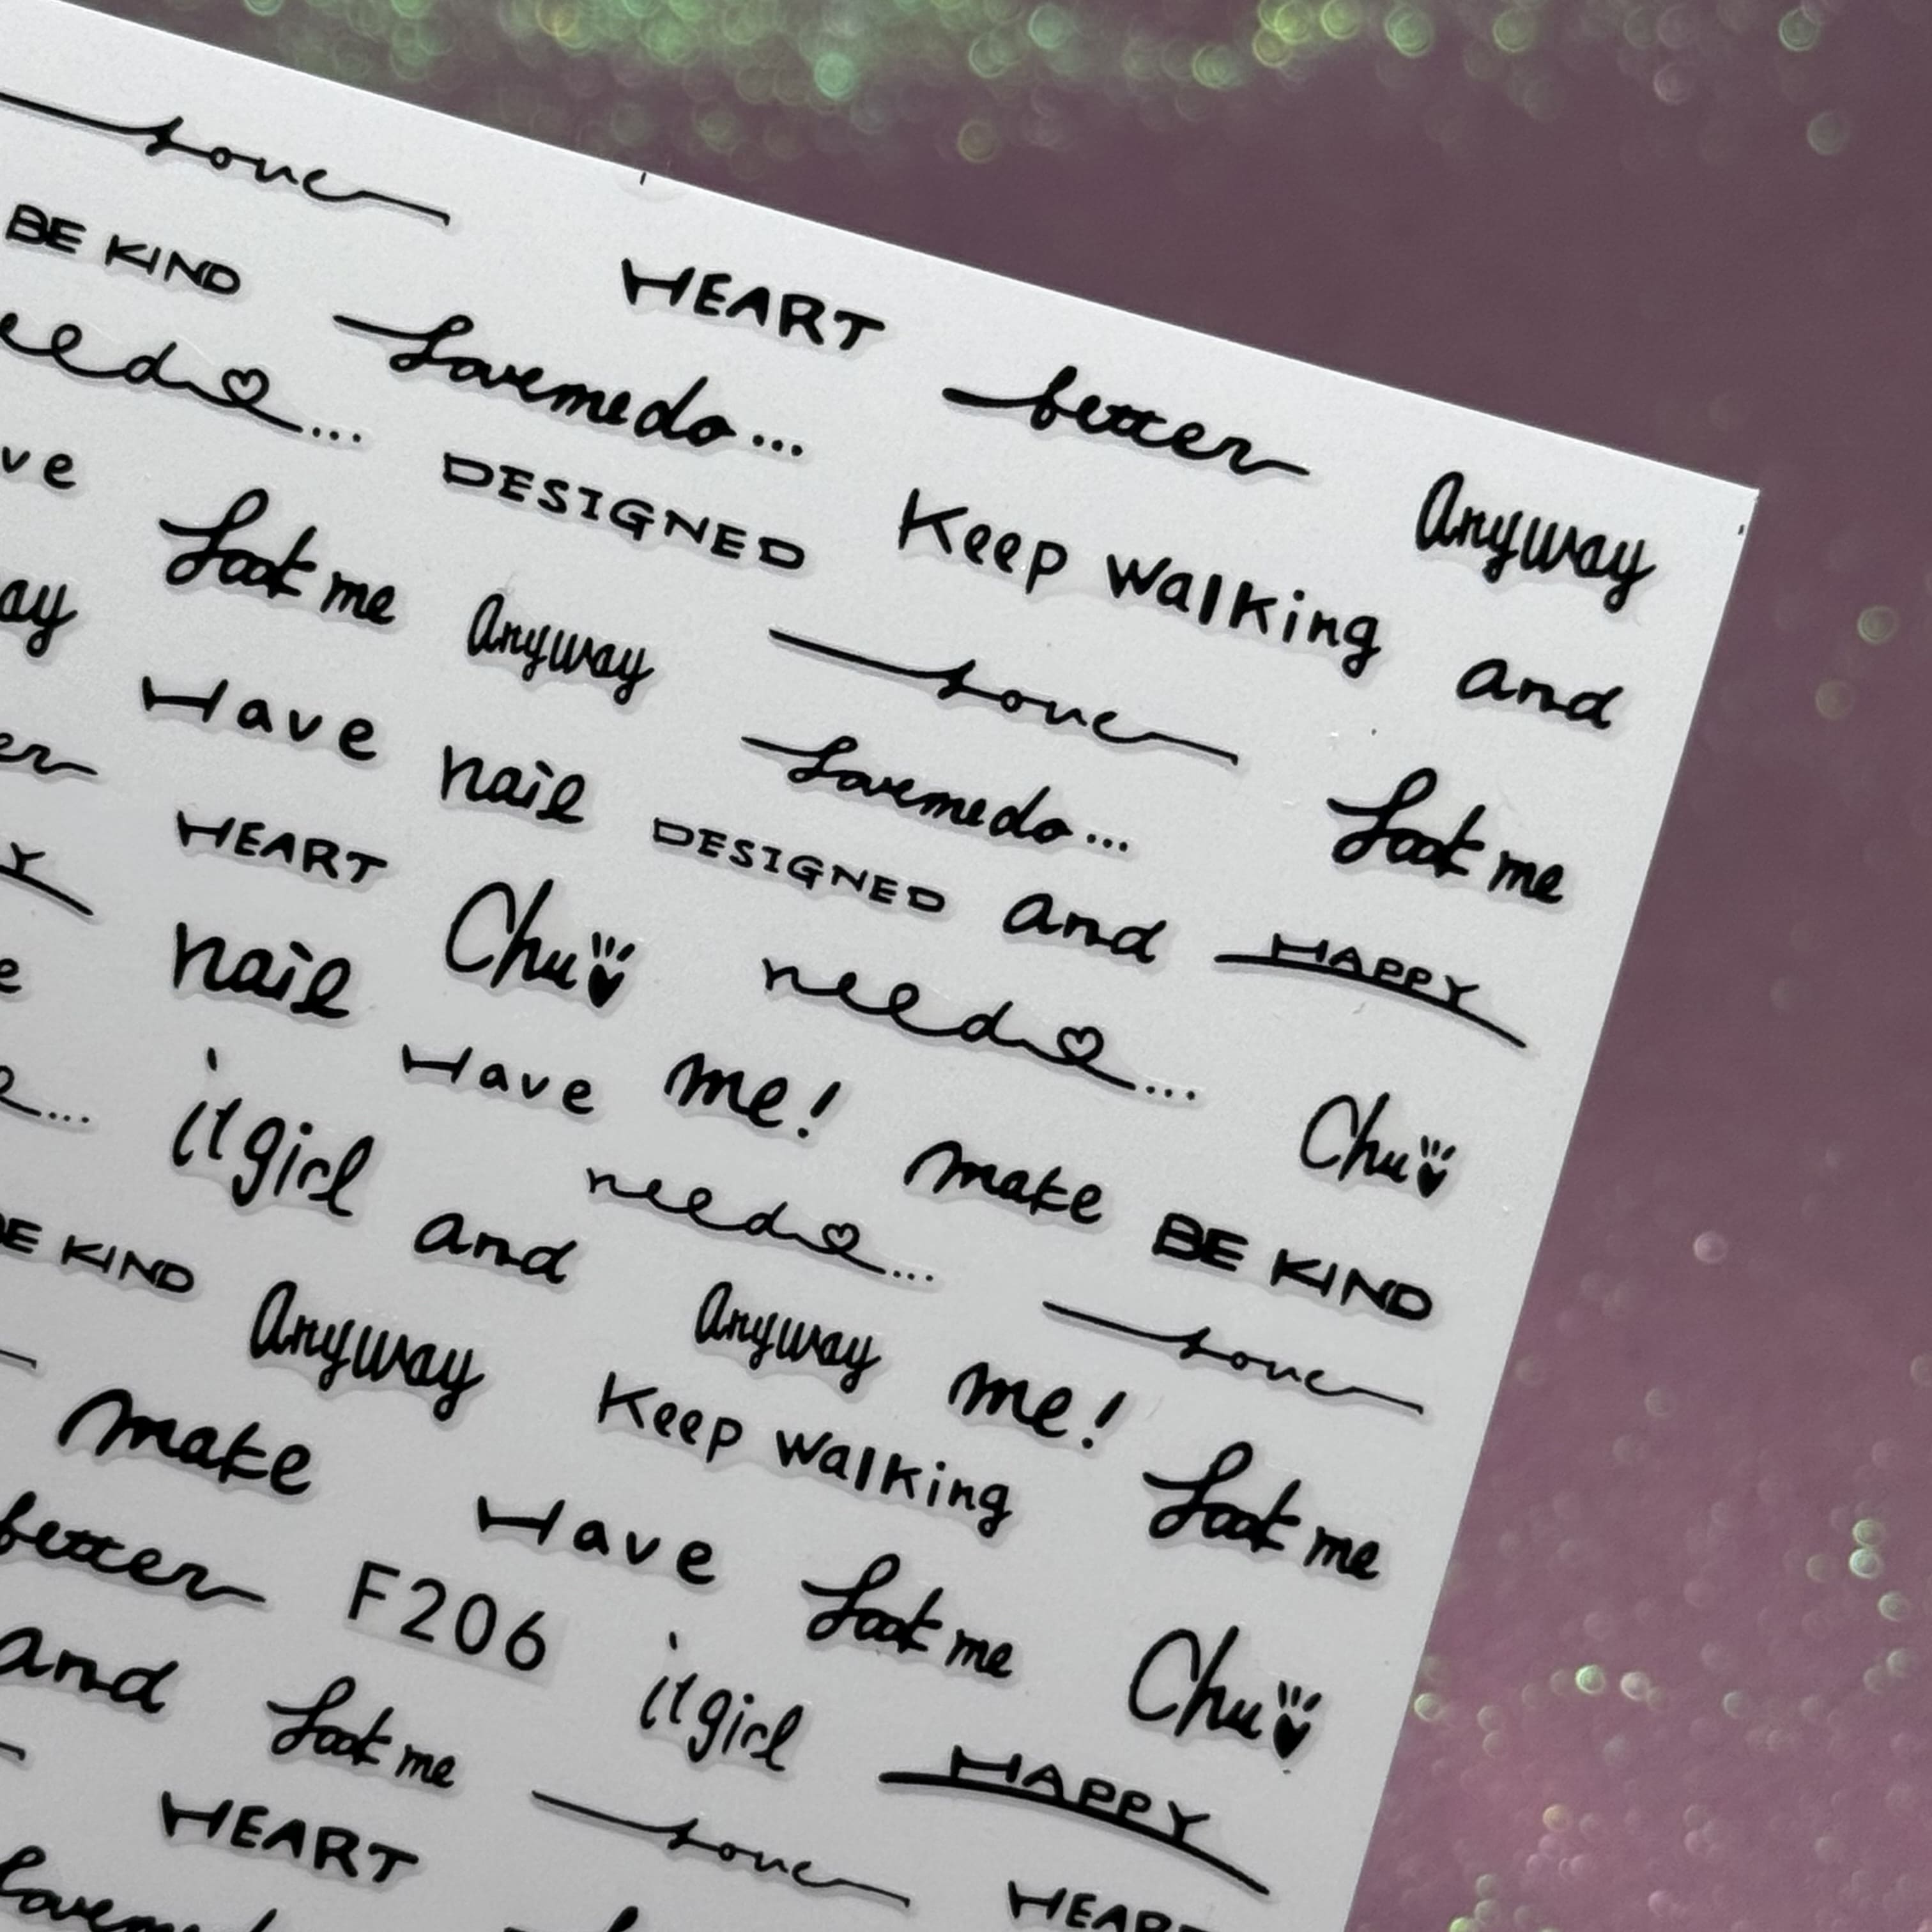 love HEART better Anyway
BE KIND Lovemedo... Keep walking and
need... DESIGNED love Look me
ve Look me Anyway Lovemedo... HAPPY
ay Have nail DESIGNED and Chu
er HEART Chu need... BE KIND
Y nail Have me! make love
e itgirl and need... me! Look me
BE KIND Anyway Anyway Keep walking Chu
make Have Look me HAPPY
better F206 itgirl
and Look me love HEART
HEART
Lovemedo